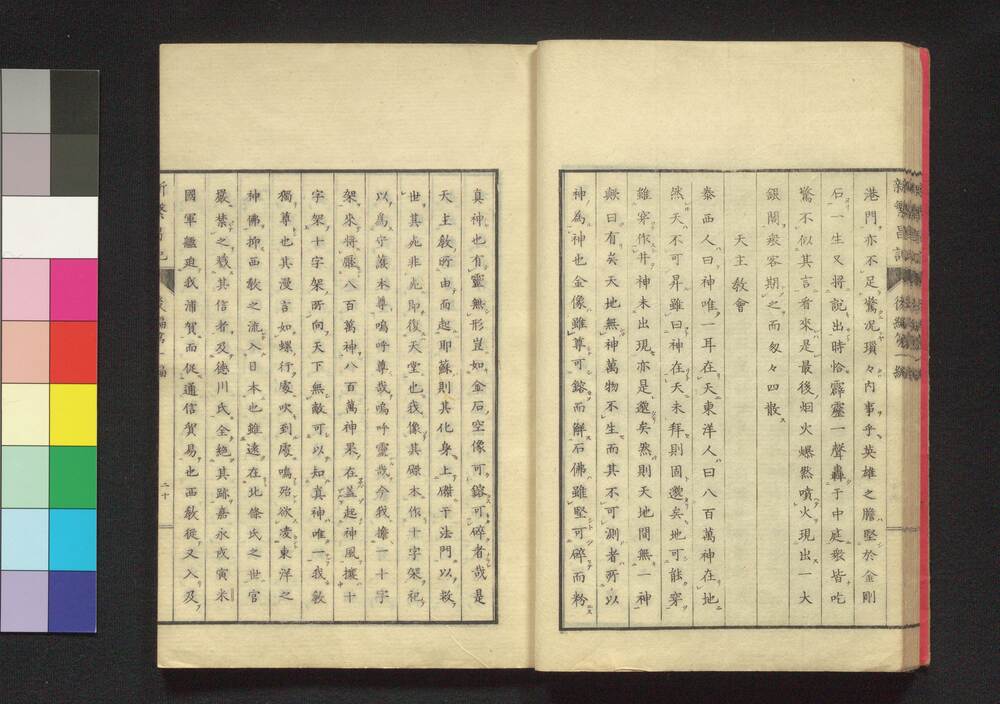 港門亦不足驚况瑣々内事乎英雄之膽堅於金剛
石一生又將說出時恰霹靂一聲轟于中庭衆皆吃
驚不似其言看來是最後烟火爆然噴火現出一大
銀閣衆客期之而匆々四散
天主教會
泰西人曰神唯一耳在天東洋人曰八百萬神在地
然天不可昇雖曰神在天未拜則固邈矣地可能穿
雖穿作井神未出現亦是邈矣然則天地間無一神
歟曰有矣天地無神萬物不生而其不可測者所以
神爲神也金像雖尊可鎔而解石佛雖堅可碎而粉
真神也有靈無形豈如金石空像可鎔可碎者哉是
天主教所由而起耶蘇則其化身上磔于法門以救
世其死非死即復天堂也我像其磔木作十字架祀
以爲守護本尊嗚呼尊哉嗚呼靈哉今我擔一十字
架來將壓八百萬神八百萬神果在盍起神風攘十
字架十字架所向天下無敵可以知真神唯一我教
獨尊也其漫言如螺行處吹到處鳴殆欲凌東洋之
神佛抑西教之流入日本也雖遠在北條氏之世官
嚴禁之戮其信者及德川氏全絶其跡嘉永戍寅米
國軍艦廹我浦賀而促通信貿易也西教從又入及
二十